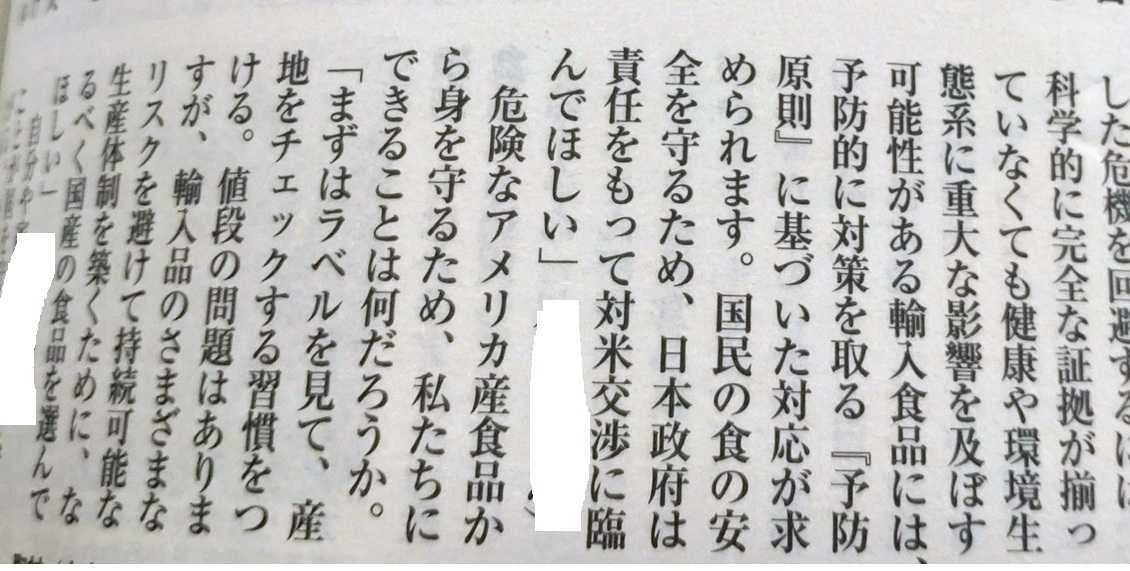 した危機を回避するには
科学的に完全な証拠が揃っ
ていなくても健康や環境生
態系に重大な影響を及ぼす
可能性がある輸入食品には、
予防的に対策を取る『予防
原則』に基づいた対応が求
められます。国民の食の安
全を守るため、日本政府は
責任をもって対米交渉に臨
んでほしい」
危険なアメリカ産食品か
ら身を守るため、私たちに
できることは何だろうか。
「まずはラベルを見て、産
地をチェックする習慣をつ
ける。値段の問題はありま
すが、輸入品のさまざまな
リスクを避けて持続可能な
生産体制を築くために、な
るべく国産の食品を選んで
ほしい」
自分や